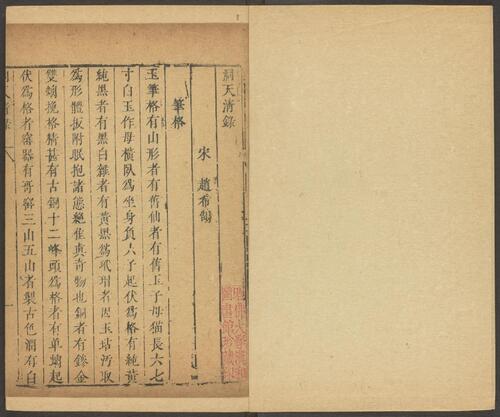 洞天清錄
宋 趙希鵠
筆格
玉筆格有山形者有舊仙者有舊玉子母猫長六七
寸白玉作母橫臥爲坐身負六子起伏爲格有純黃
純黑者有黑白雜者有黃黑爲玳瑁者因玉玷汚取
爲形體扳附眠抱諸態絕佳真奇物也銅者有鏒金
雙螭挽格精甚有古銅十二峰頭爲格者有單螭起
伏爲格者窰器有哥窰三山五山者製古色潤有白
哈佛大學漢和
圖書館珍藏印